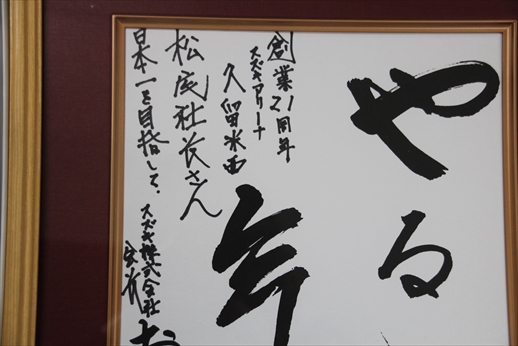 やる
創業21周年
スズキアリーナ
久留米西
松尾社長さん
日本一を目指して、
スズキ株式会社